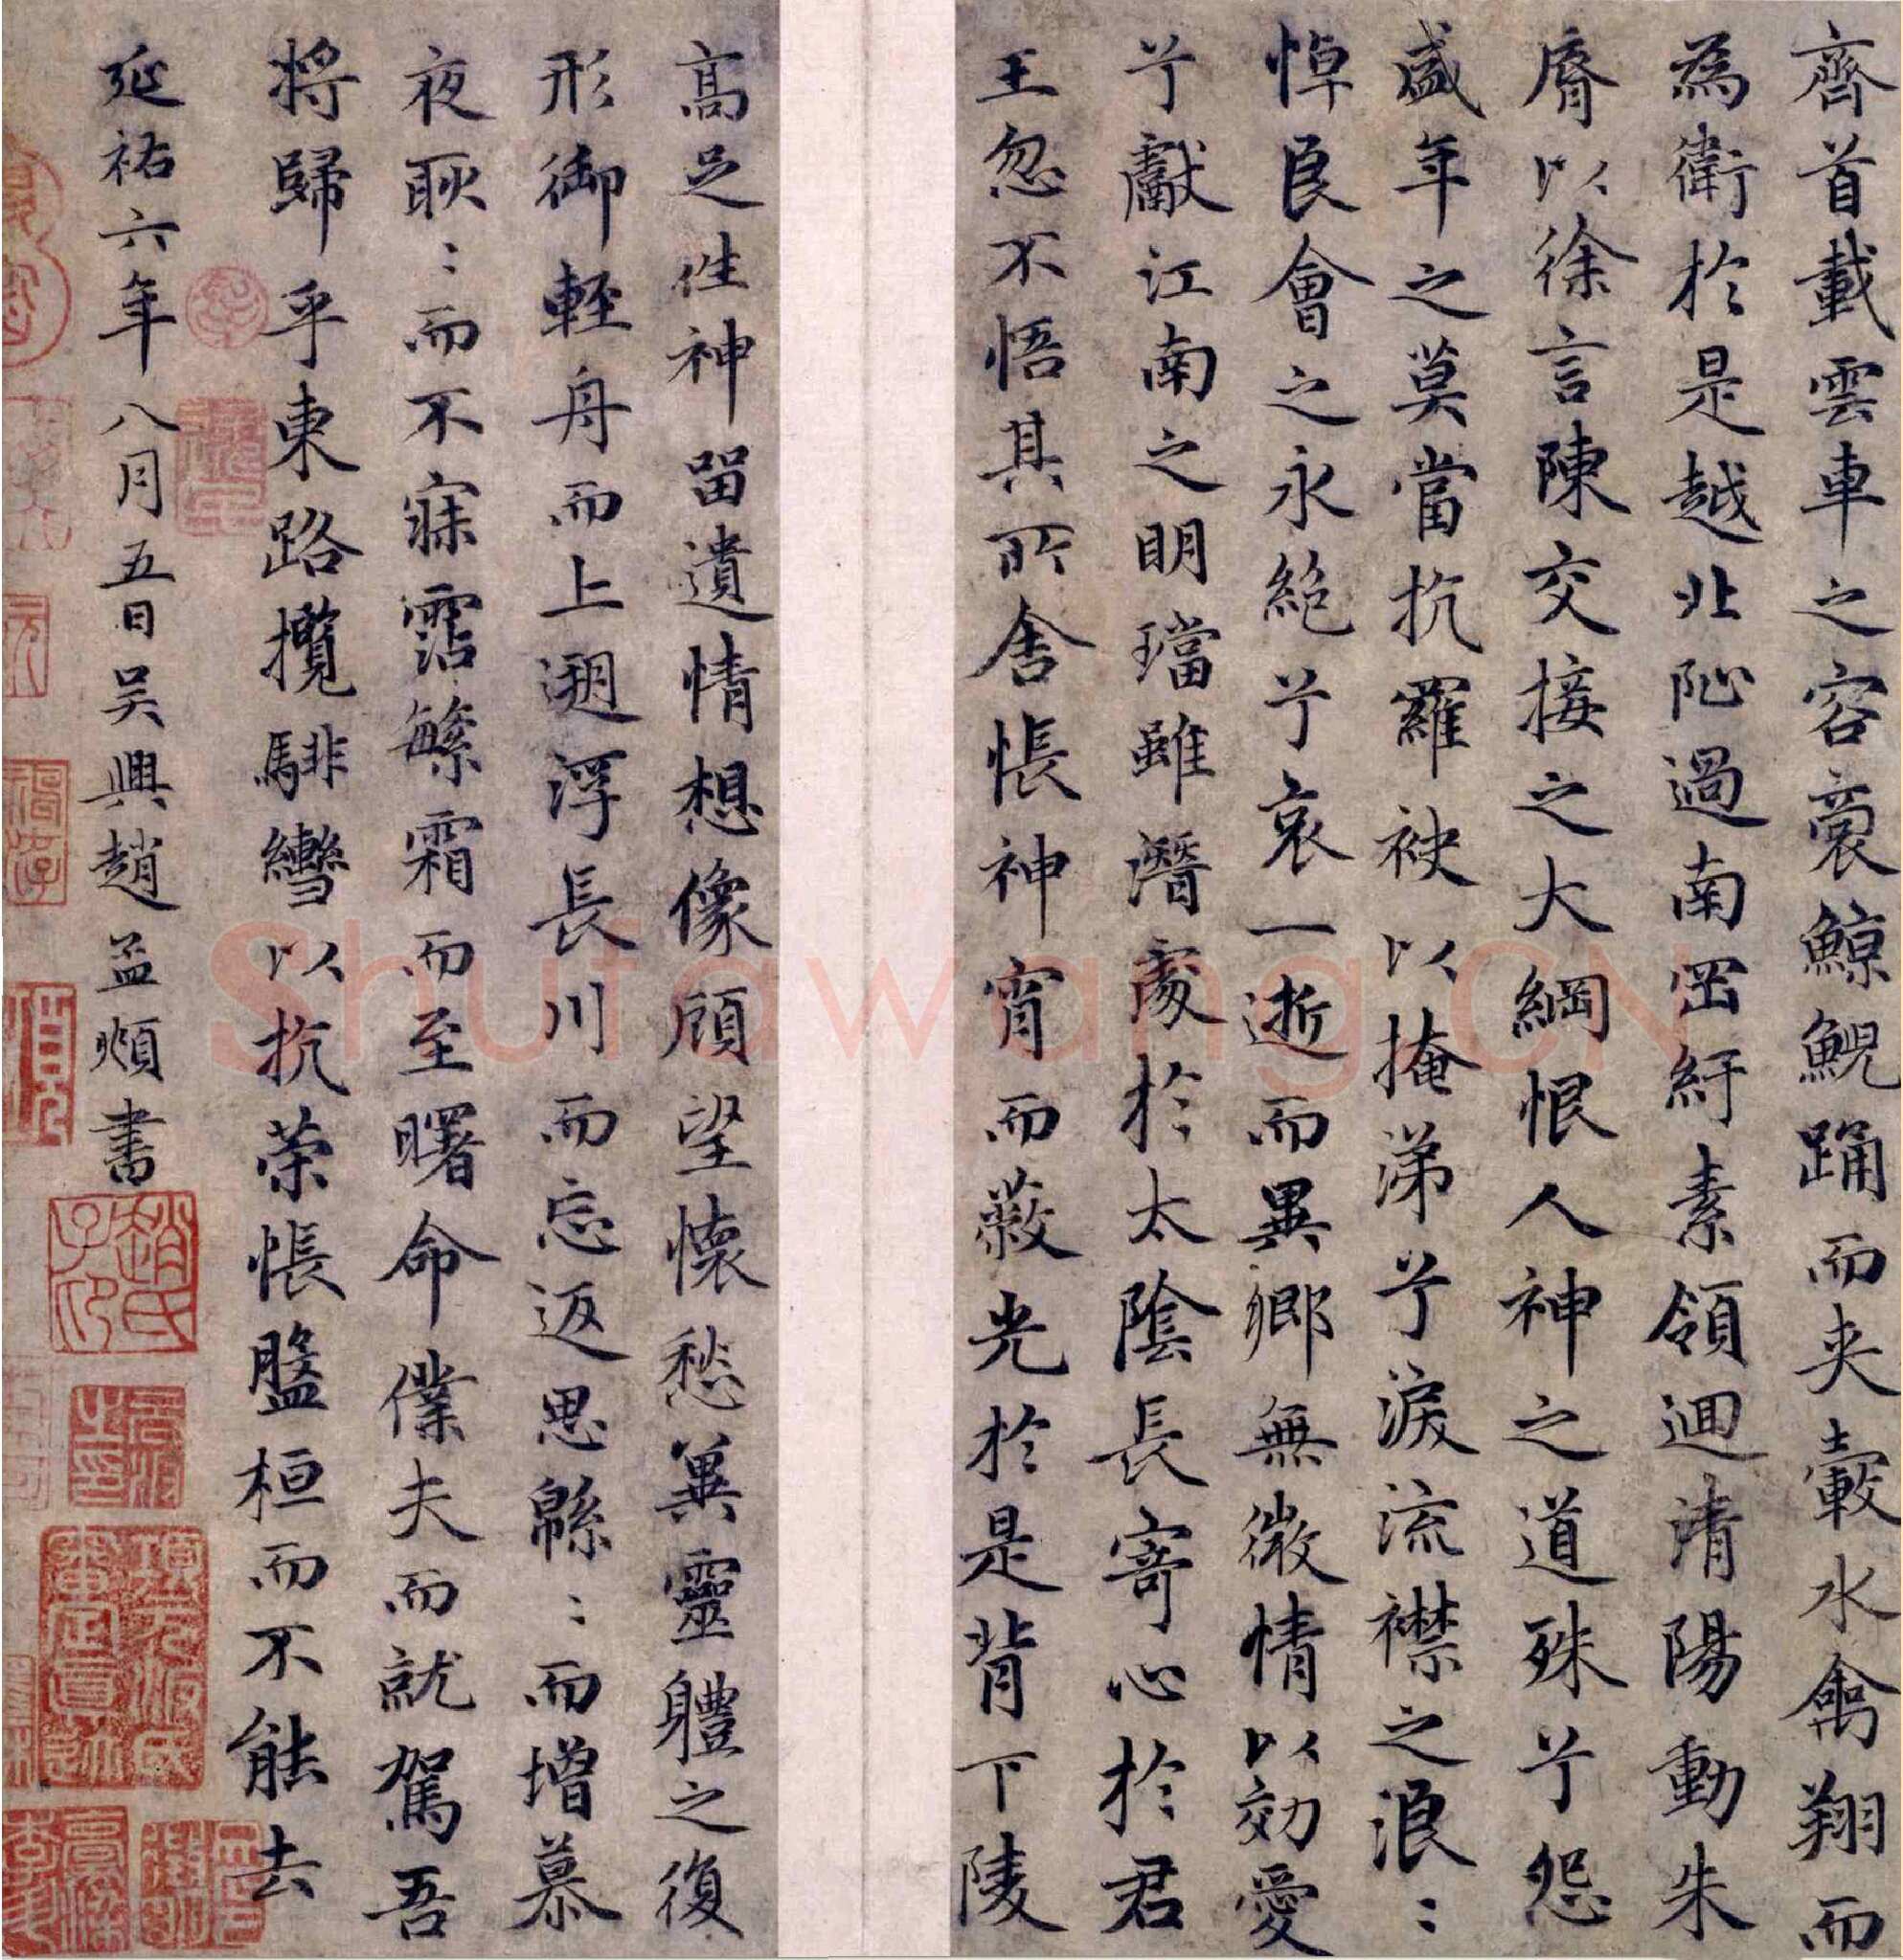 齊首載雲車之容裔鯨鯢踊而夾轂水禽翔而
為衛於是越北阯過南岡紆素領迴清陽動朱
脣以徐言陳交接之大綱恨人神之道殊兮怨
盛年之莫當抗羅袂以掩涕兮淚流襟之浪〻
悼良會之永絕兮哀一逝而異鄉無微情以効愛
兮獻江南之明璫雖潛處於太陰長寄心於君
王忽不悟其所舍悵神宵而蔽光於是背下陵
高足性神留遺情想像顧望懷愁冀靈軆之復
形御輕舟而上遡浮長川而忘返思緜〻而增慕
夜耿〻而不寐霑繁霜而至曙命僕夫而就駕吾
將歸乎東路攬騑轡以抗榮悵盤桓而不能去
延祐六年八月五日吳興趙孟頫書
趙氏子印
項元汴氏審定真跡
Shufawang.CN